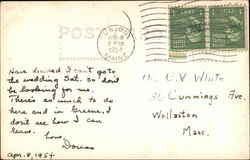 POST
CORRESPONDENCE
UNION
APR 8
5 PM
1954
MAINE
Have decided I can't go to
the wedding Sat. so don't
be looking for me.
There's so much to do
here and in Greene, I
don't see how I can
leave.
Love,
Dorcas
Apr. 8, 1954
Mr. E. V. White
36 Cummings Ave.
Wollaston
Mass.